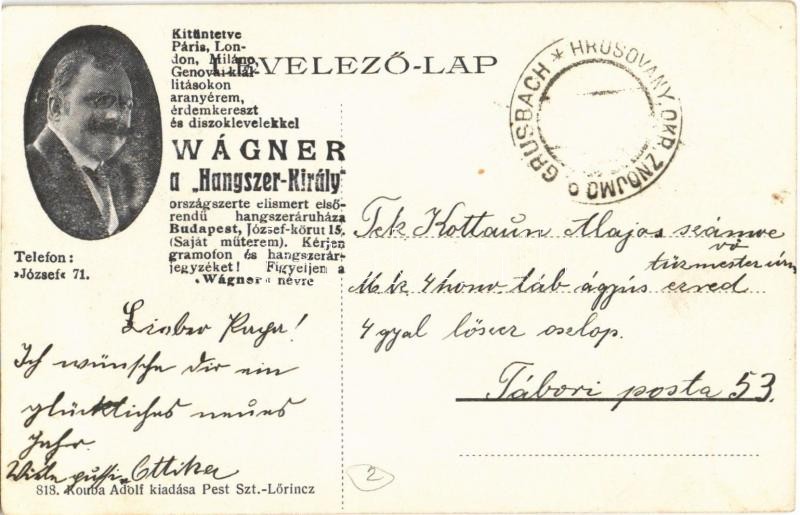 Kitüntetve
Páris, Lon-
don, Miláno,
Genovai kiál-
lításokon
aranyérem,
érdemkereszt
és diszoklevelekkel
WÁGNER
a „Hangszer-Király"
országszerte elismert első-
rendű hangszeráruháza
Budapest, József-körut 15.
(Saját műterem). Kérjen
gramofon és hangszerár-
jegyzéket! Figyeljen a
„Wágner" névre
Telefon:
»József« 71.
LEVELEZŐ-LAP
GRUSBACH * HRUŠOVANY, OKR. ZNOJMO
Lieber Papa!
Ich wünsche dir ein
glückliches neues
Jahr.
Viele pussi Ottika
818. Kouba Adolf kiadása Pest Szt.-Lőrincz
Tek Kottaun Alajos számve
vő
tüzmester úrn
M k 4 honv táb ágyús ezred
4 gyal lőszer oszlop.
Tábori posta 53.
2